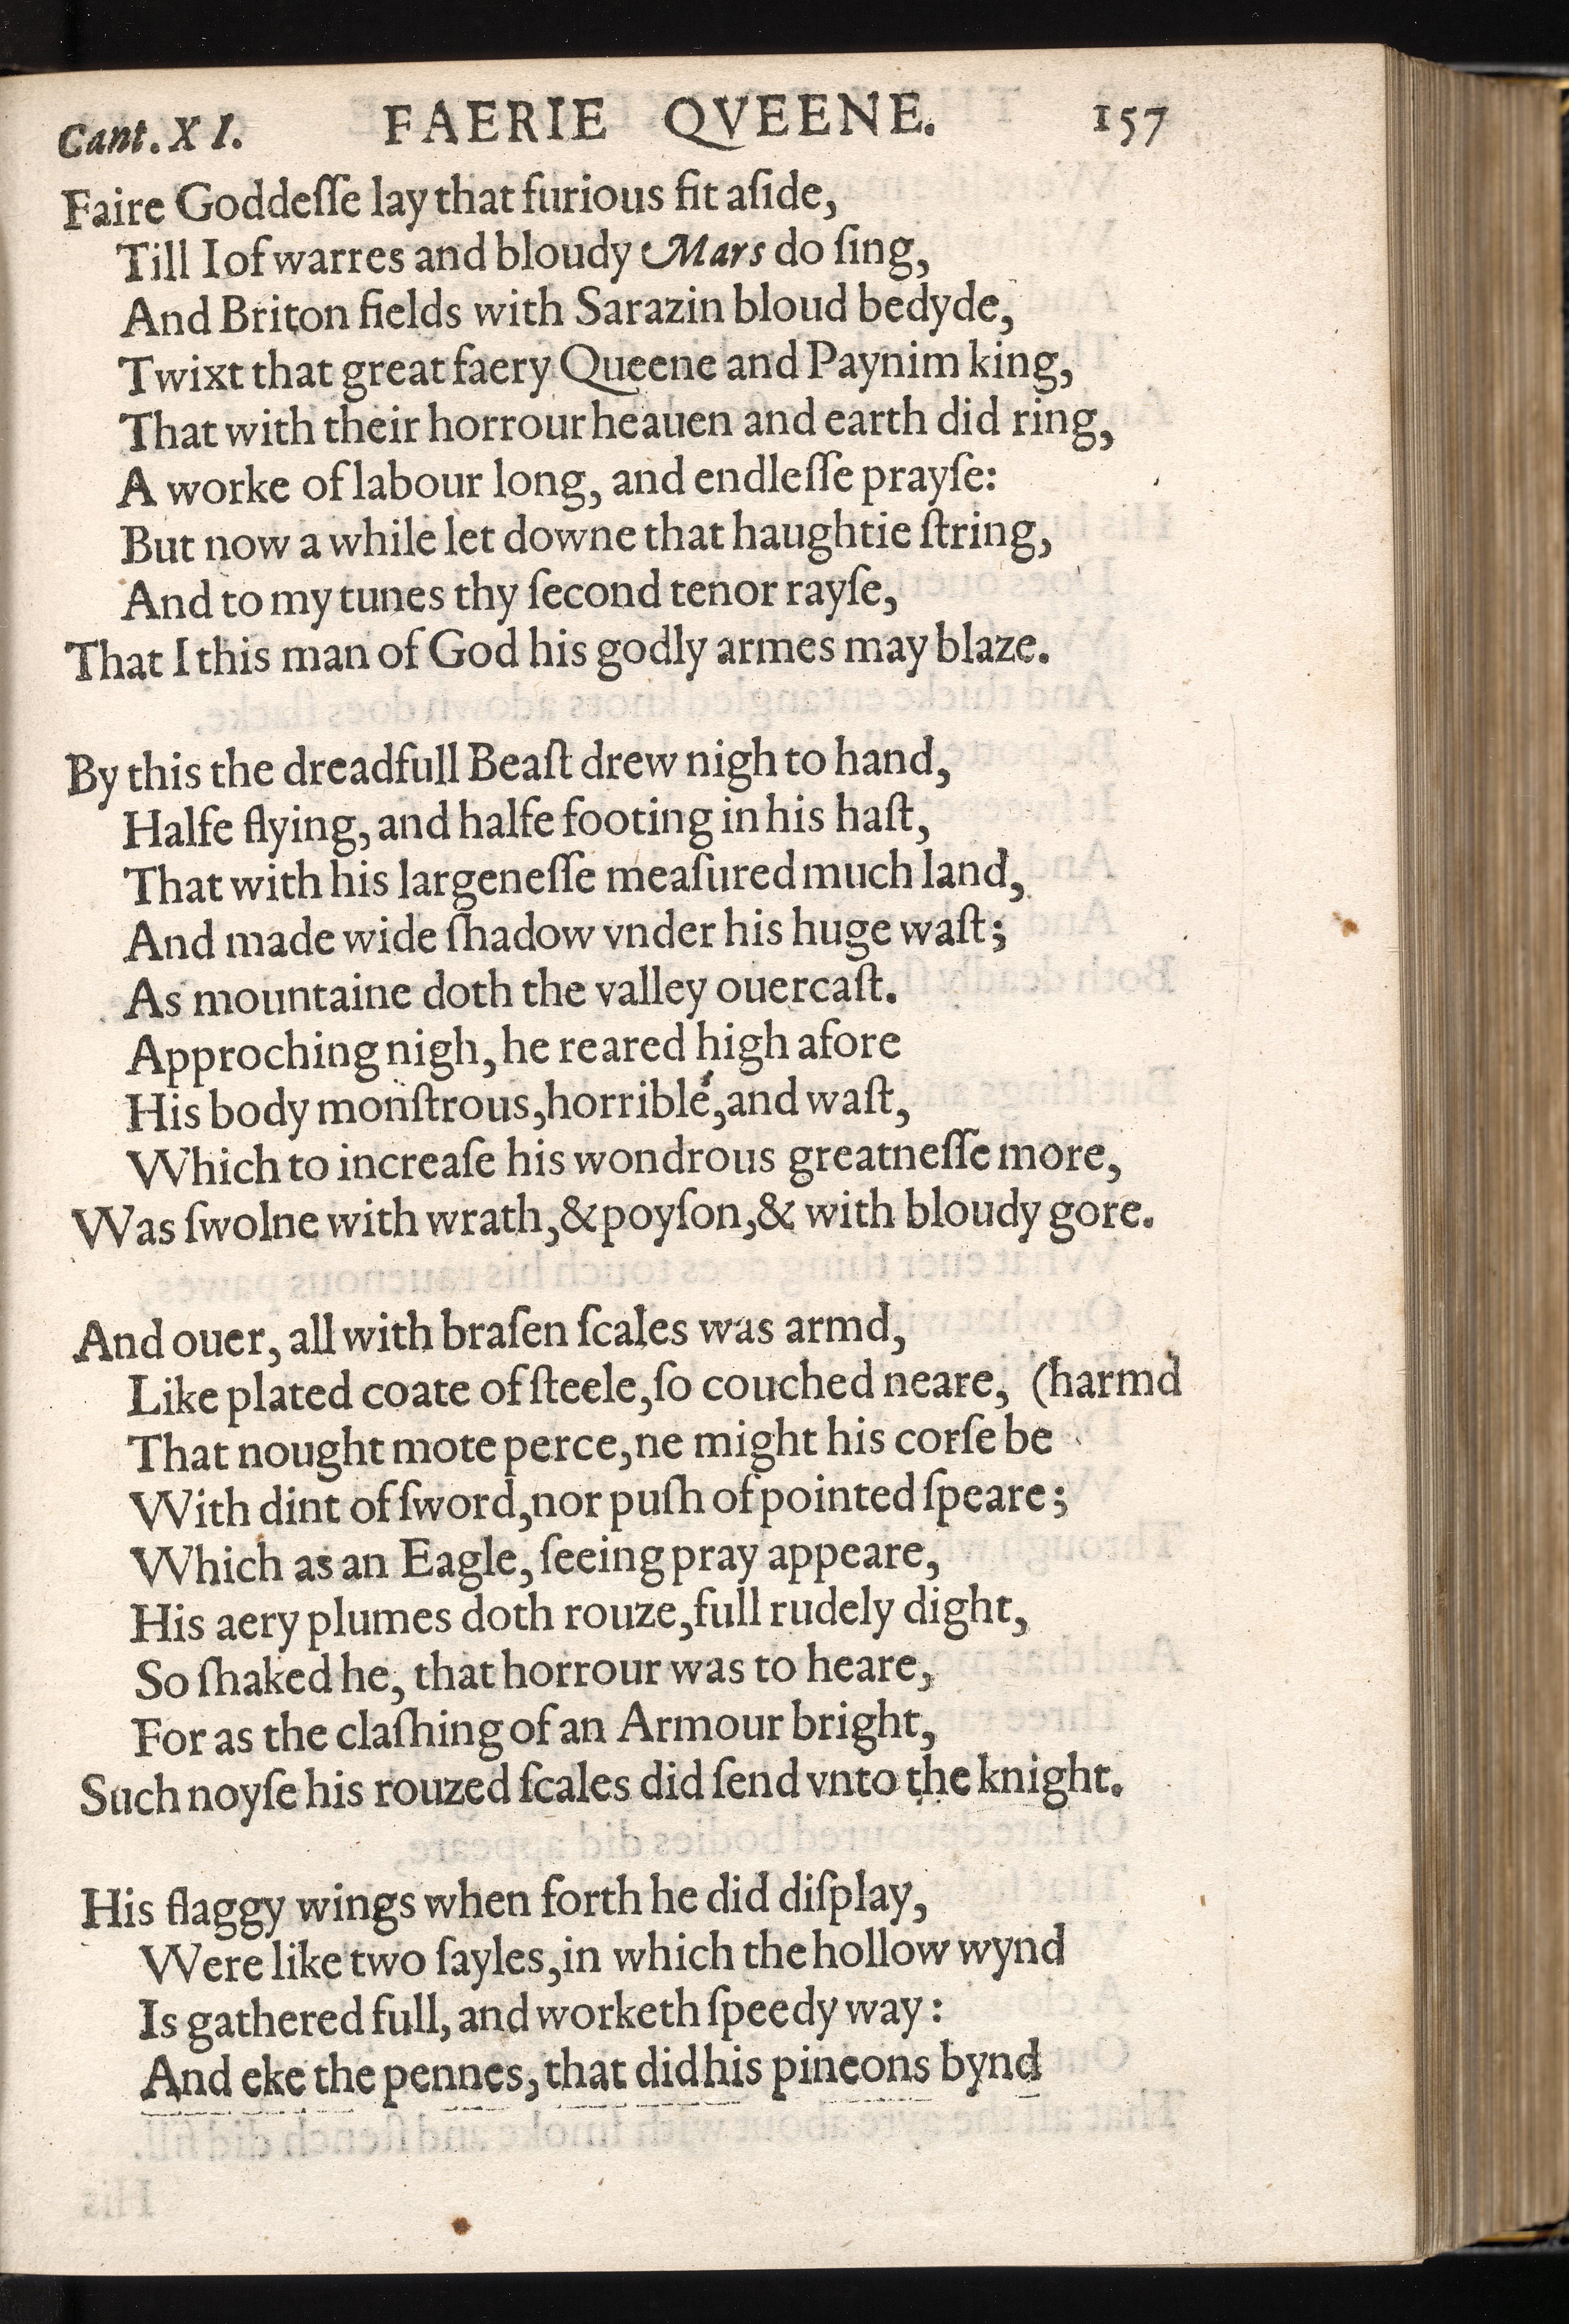 Cant. XI. FAERIE QVEENE. 157
Faire Goddeſſe lay that furious fit aſide,
Till I of warres and bloudy Mars do ſing,
And Briton fields with Sarazin bloud bedyde,
Twixt that great faery Queene and Paynim king,
That with their horrour heauen and earth did ring,
A worke of labour long, and endleſſe prayſe:
But now a while let downe that haughtie ſtring,
And to my tunes thy ſecond tenor rayſe,
That I this man of God his godly armes may blaze.
By this the dreadfull Beaſt drew nigh to hand,
Halfe flying, and halfe footing in his haſt,
That with his largeneſſe meaſured much land,
And made wide ſhadow vnder his huge waſt;
As mountaine doth the valley ouercaſt.
Approching nigh, he reared high afore
His body monſtrous, horrible, and waſt,
Which to increaſe his wondrous greatneſſe more,
Was ſwolne with wrath, & poyſon, & with bloudy gore.
And ouer, all with braſen ſcales was armd,
Like plated coate of ſteele, ſo couched neare, (harmd
That nought mote perce, ne might his corſe be
With dint of ſword, nor puſh of pointed ſpeare;
Which as an Eagle, ſeeing pray appeare,
His aery plumes doth rouze, full rudely dight,
So ſhaked he, that horrour was to heare,
For as the claſhing of an Armour bright,
Such noyſe his rouzed ſcales did ſend vnto the knight.
His flaggy wings when forth he did diſplay,
Were like two ſayles, in which the hollow wynd
Is gathered full, and worketh ſpeedy way:
And eke the pennes, that did his pineons bynd